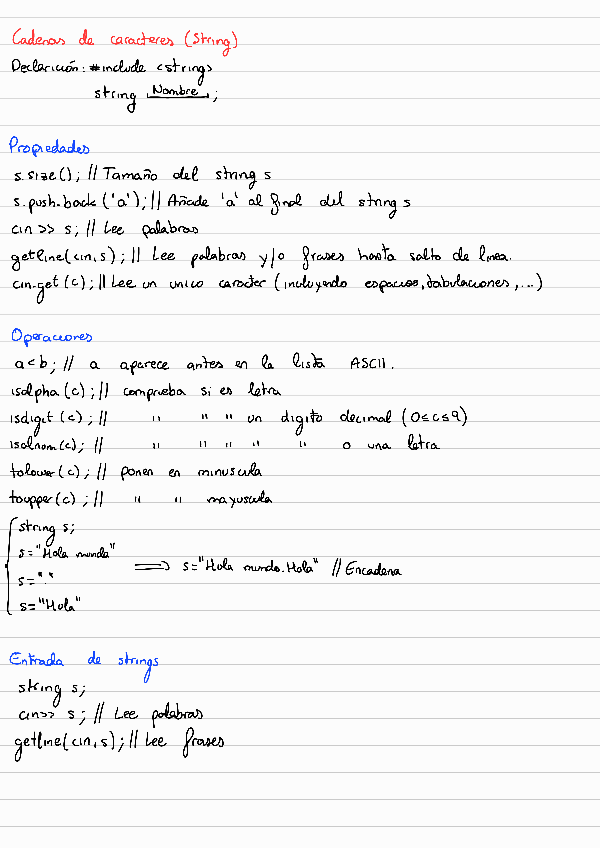 Cadenas de caracteres (String)
Declaración: #include <string>
string Nombre ;
Propiedades
s.size(); // Tamaño del string s
s.push.back ('a'); // Añade 'a' al final del string s
cin >> s; // Lee palabras
getline(cin,s); // Lee palabras y/o frases hasta salto de linea.
cin.get (c); // Lee un unico caracter (incluyendo espacios, tabulaciones, ...)
Operaciones
a < b; // a aparece antes en la lista ASCII.
isalpha (c); // comprueba si es letra
isdigit (c); // " " " un digito decimal (0≤c≤9)
isalnom(c); // " " " " " o una letra
tolower (c); // ponen en minuscula
toupper (c); // " " mayuscula
string s;
s="Hola mundo"
s="."
s="Hola"
⟹ s="Hola mundo.Hola" // Encadena
Entrada de strings
string s;
cin>> s; // Lee palabras
getline(cin,s); // Lee frases